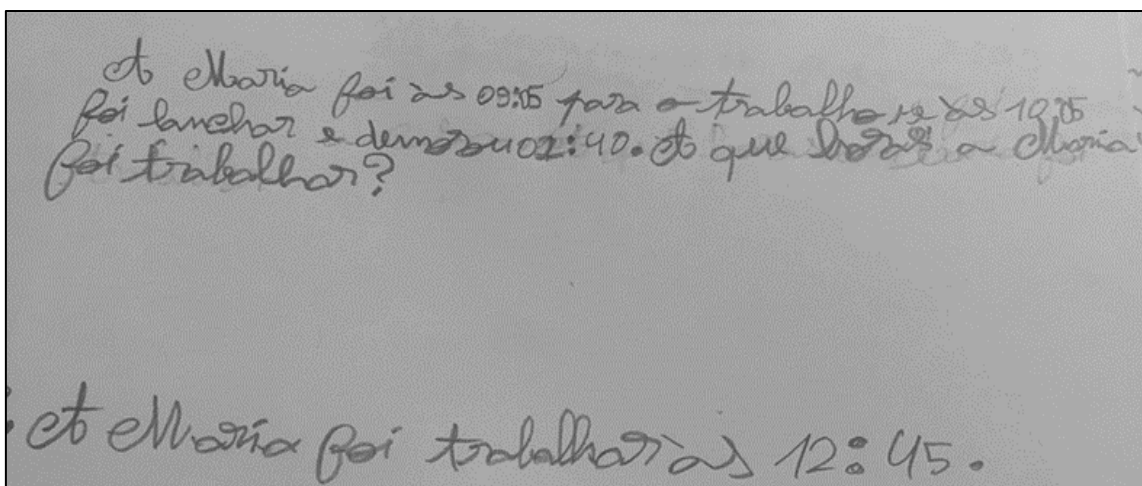 A Maria foi às 09:05 para o trabalho e às 10:05
foi lanchar e demorou 02:40. A que horas a Maria
foi trabalhar?
A Maria foi trabalhar às 12:45.